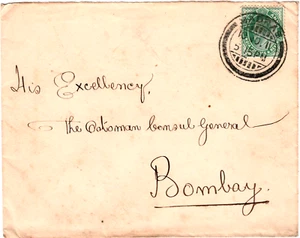 His Excellency,
The Ottoman Consul General
Bombay.